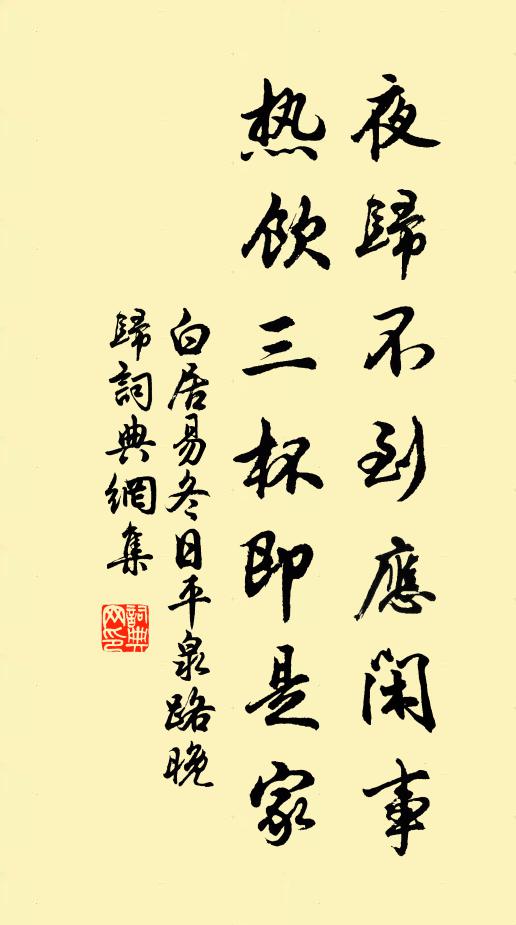 夜歸不到應閑事
热飲三杯即是家
白居易冬日平泉路晚
歸詞典網集
詞典网印